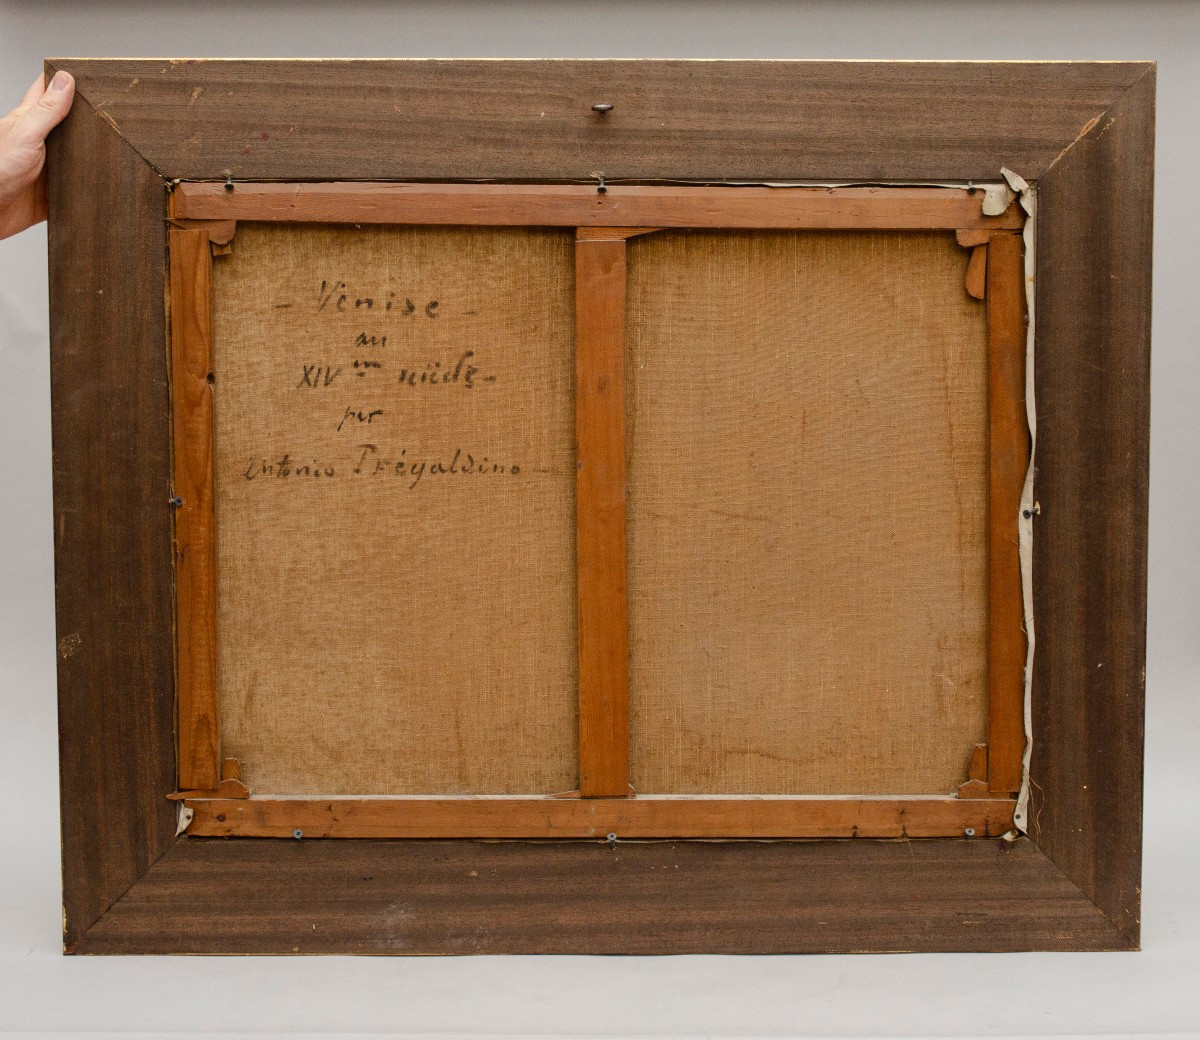 - Venise -
au
XIV ème siècle -
par
Antonio Prégaldino -